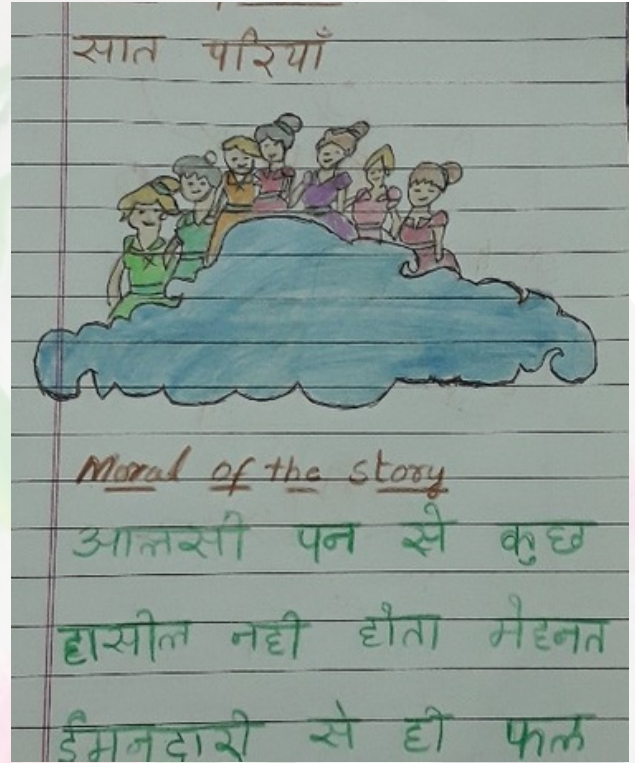 सात परियाँ
Moral of the story
आलसी पन से कुछ
हासील नही होता मेहनत
ईमनदारी से ही फल